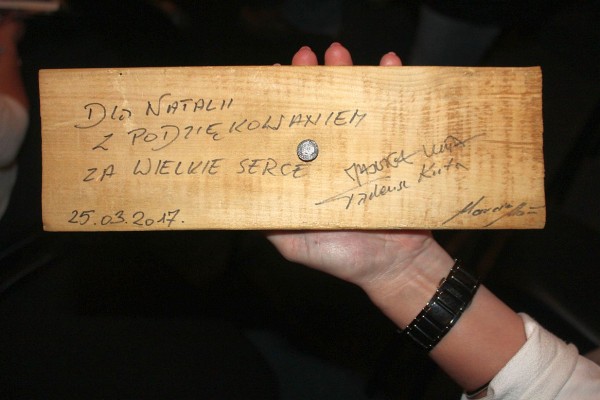 DLA NATALII
Z PODZIĘKOWANIEM
ZA WIELKIE SERCE
Tadeusz Kuta
25.03.2017.